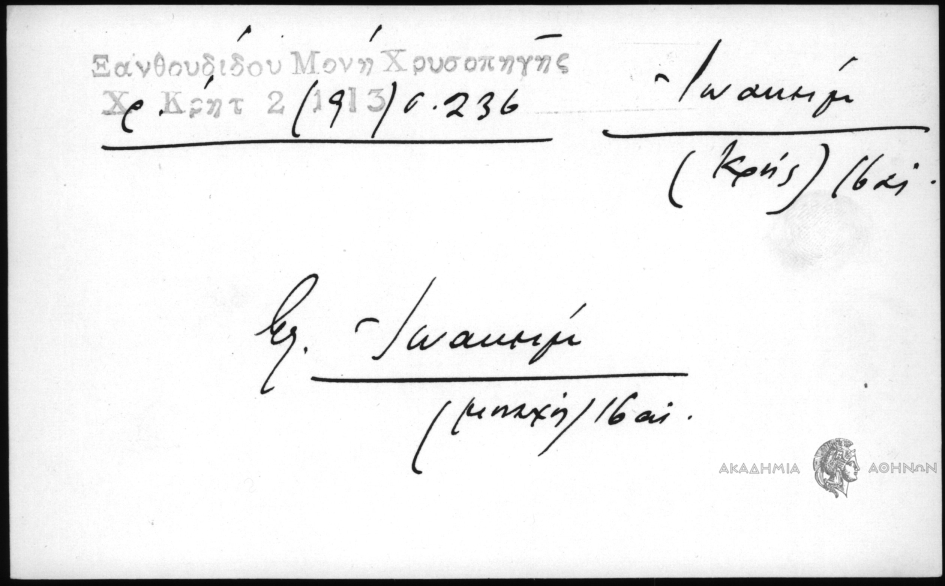 Ξανθουδίδου Μονή Χρυσοπηγῆς
Χρ. Κρήτ 2 (1913) σ. 236
Ἰωακείμ
(Κρής) 16 αἰ.
Ἰωακείμ
16 αἰ.
ΑΚΑΔΗΜΙΑ ΑΘΗΝΩΝ